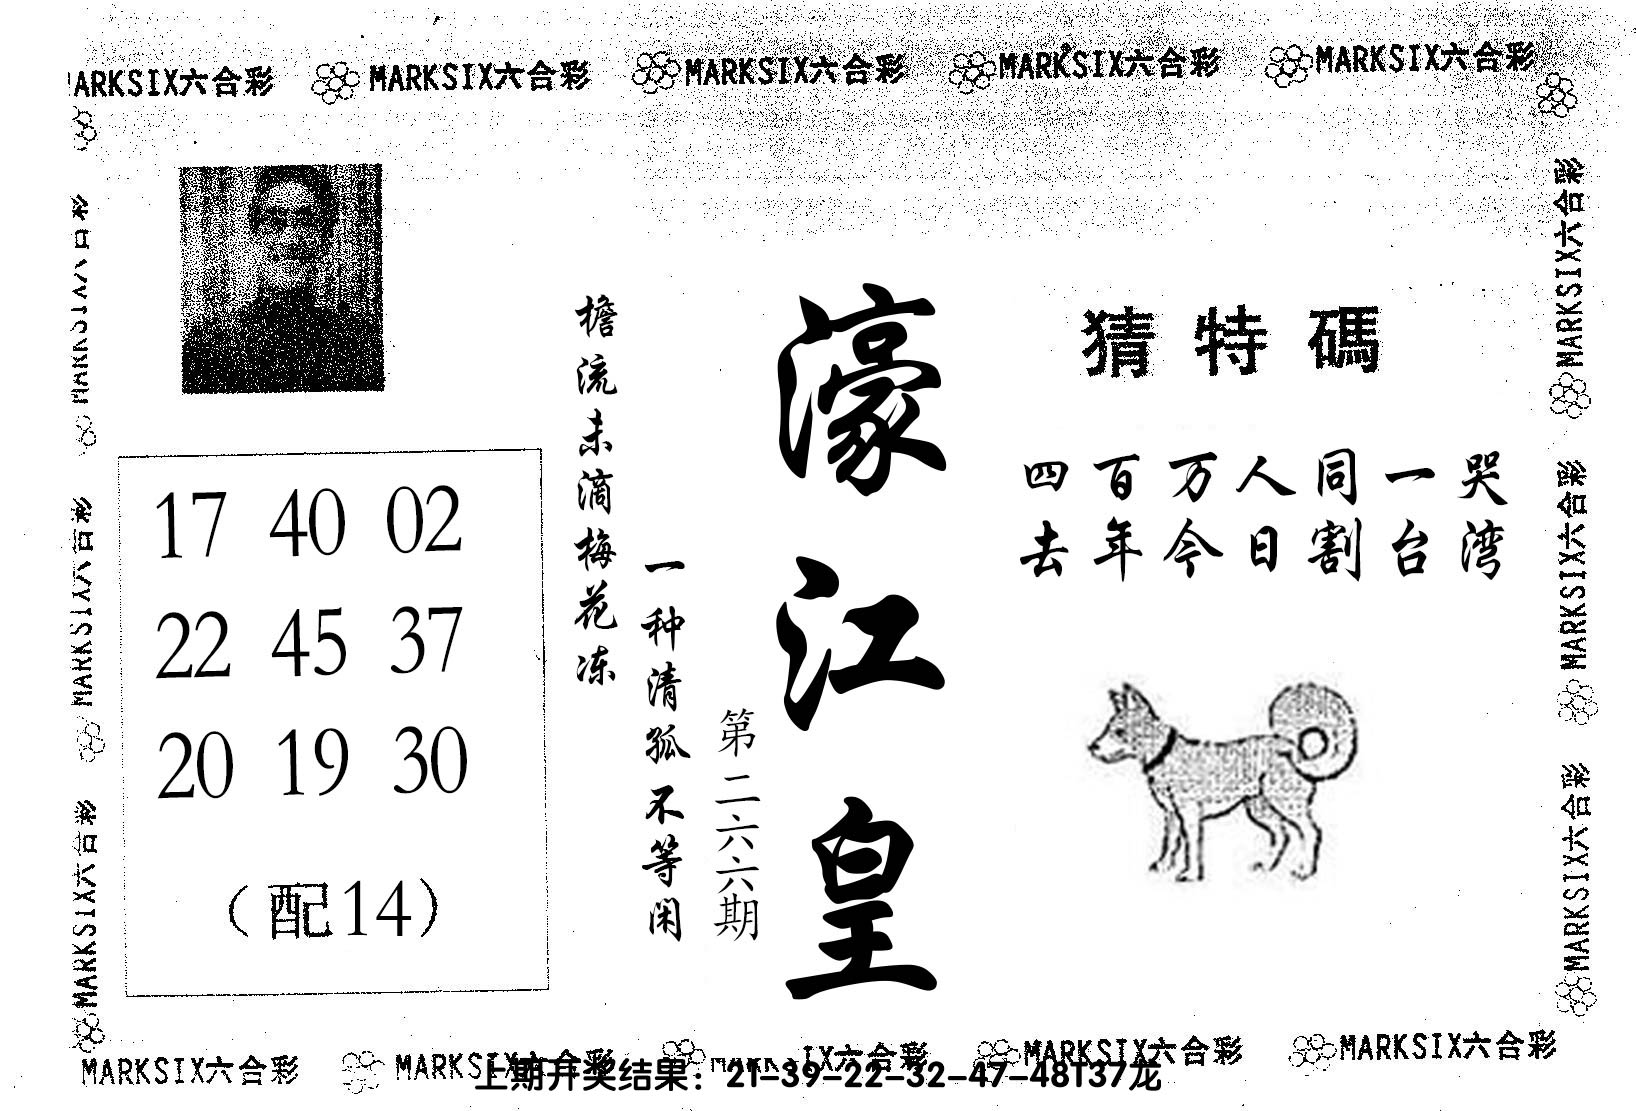 MARKSIX六合彩 MARKSIX六合彩 MARKSIX六合彩 MARKSIX六合彩 MARKSIX六合彩
猜特碼
四百万人同一哭
去年今日割台湾
濠江皇
第二六六期
一种清孤不等闲
檐流未滴梅花冻
17 40 02
22 45 37
20 19 30
(配14)
MARKSIX六合彩
MARKSIX六合彩
MARKSIX六合彩
MARKSIX六合彩
MARKSIX六合彩
MARKSIX六合彩
MARKSIX六合彩 MARKSIX六合彩 MARKSIX六合彩 MARKSIX六合彩 MARKSIX六合彩
上期开奖结果：21-39-22-32-47-48T37龙